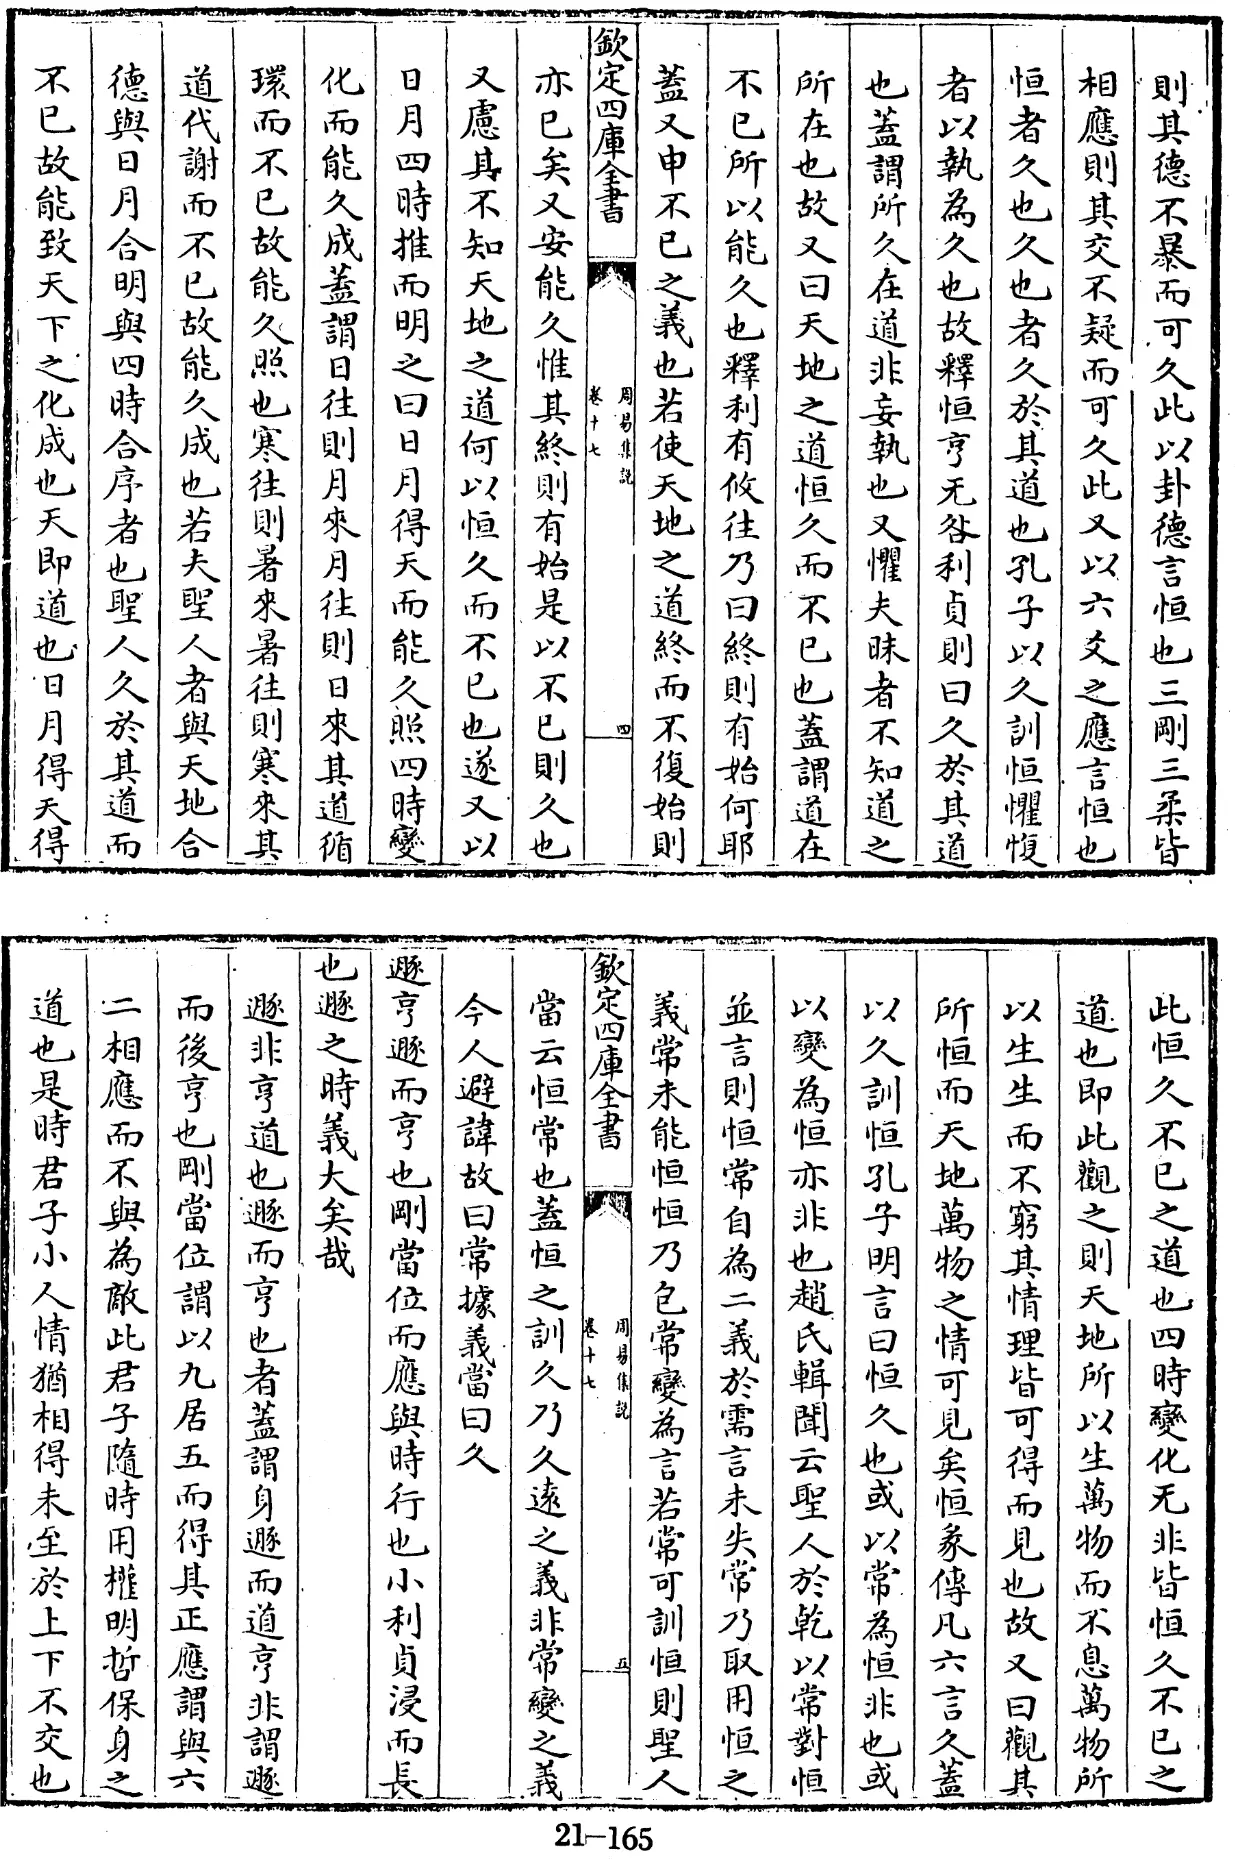 則其德不暴而可久此以卦德言恒也三剛三柔皆
相應則其交不疑而可久此又以六爻之應言恒也
恒者久也久也者久於其道也孔子以久訓恒懼愎
者以執為久也故釋恒亨无咎利貞則曰久於其道
也蓋謂所久在道非妄執也又懼夫昧者不知道之
所在也故又曰天地之道恒久而不已也蓋謂道在
不已所以能久也釋利有攸往乃曰終則有始何耶
蓋又申不已之義也若使天地之道終而不復始則
欽定四庫全書
周易集說
卷十七
四
亦已矣又安能久惟其終則有始是以不已則久也
又慮其不知天地之道何以恒久而不已也遂又以
日月四時推而明之曰日月得天而能久照四時變
化而能久成蓋謂日往則月來月往則日來其道循
環而不已故能久照也寒往則暑來暑往則寒來其
道代謝而不已故能久成也若夫聖人者與天地合
德與日月合明與四時合序者也聖人久於其道而
不已故能致天下之化成也天即道也日月得天得
此恒久不已之道也四時變化无非皆恒久不已之
道也即此觀之則天地所以生萬物而不息萬物所
以生生而不窮其情理皆可得而見也故又曰觀其
所恒而天地萬物之情可見矣恒彖傳凡六言久蓋
以久訓恒孔子明言曰恒久也或以常為恒非也或
以變為恒亦非也趙氏輯聞云聖人於乾以常對恒
並言則恒常自為二義於需言未失常乃取用恒之
義常未能恒恒乃包常變為言若常可訓恒則聖人
欽定四庫全書
周易集說
卷十七
五
當云恒常也蓋恒之訓久乃久遠之義非常變之義
今人避諱故曰常據義當曰久
遯亨遯而亨也剛當位而應與時行也小利貞浸而長
也遯之時義大矣哉
遯非亨道也遯而亨也者蓋謂身遯而道亨非謂遯
而後亨也剛當位謂以九居五而得其正應謂與六
二相應而不與為敵此君子隨時用權明哲保身之
道也是時君子小人情猶相得未至於上下不交也
21-165